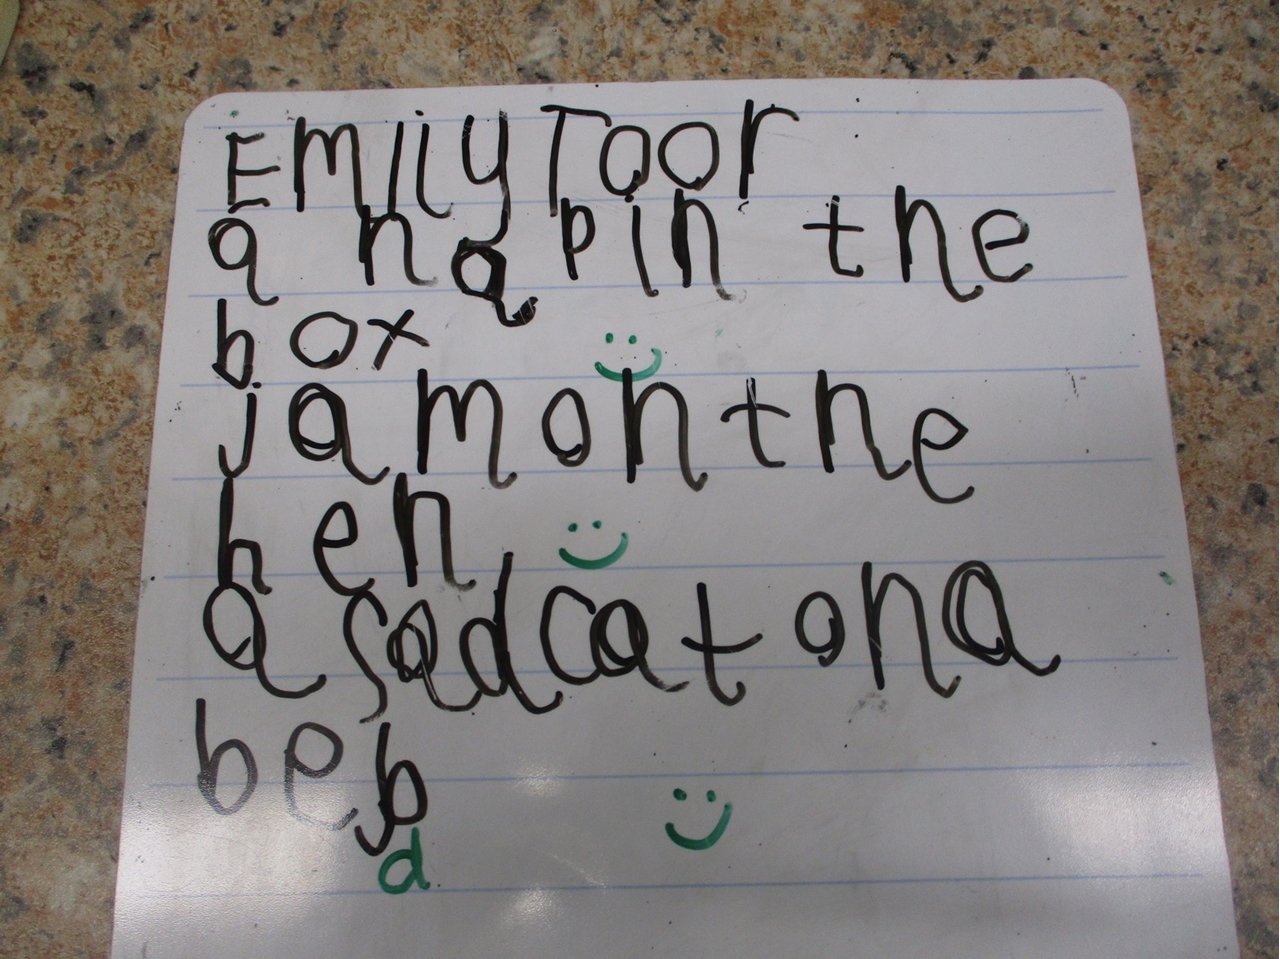 Emily Toor
a nap in the
box
jam on the
hen
a sad cat on a
beb
d